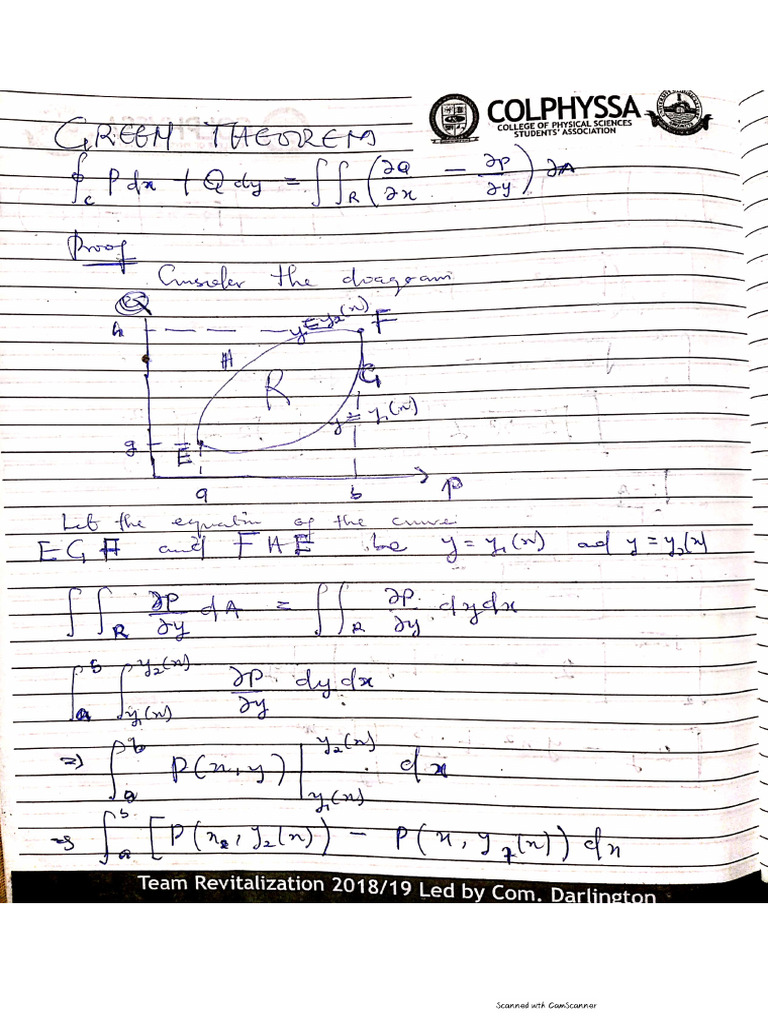 COLPHYSSA
COLLEGE OF PHYSICAL SCIENCES
STUDENTS' ASSOCIATION
GREEN THEOREM
∮c Pdx + Qdy = ∫∫R (∂Q/∂x − ∂P/∂y) ∂A
Proof
Consider the diagram
h y=y2(x) F
H
R G
y=y1(x)
g E
a b P
Let the equation of the curve
EGF and FHE be y=y1(x) and y=y2(x)
∫∫R ∂P/∂y dA = ∫∫R ∂P/∂y dydx
∫a^b ∫y1(x)^y2(x) ∂P/∂y dydx
=> ∫a^b P(x,y) |y1(x)^y2(x) dx
=> ∫a^b [P(x, y2(x)) − P(x, y1(x)) dx
Team Revitalization 2018/19 Led by Com. Darlington
Scanned with CamScanner